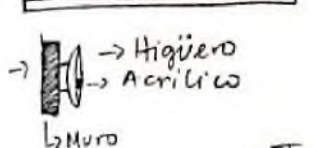 → Higüero
→ → Acrílico
↳ Muro